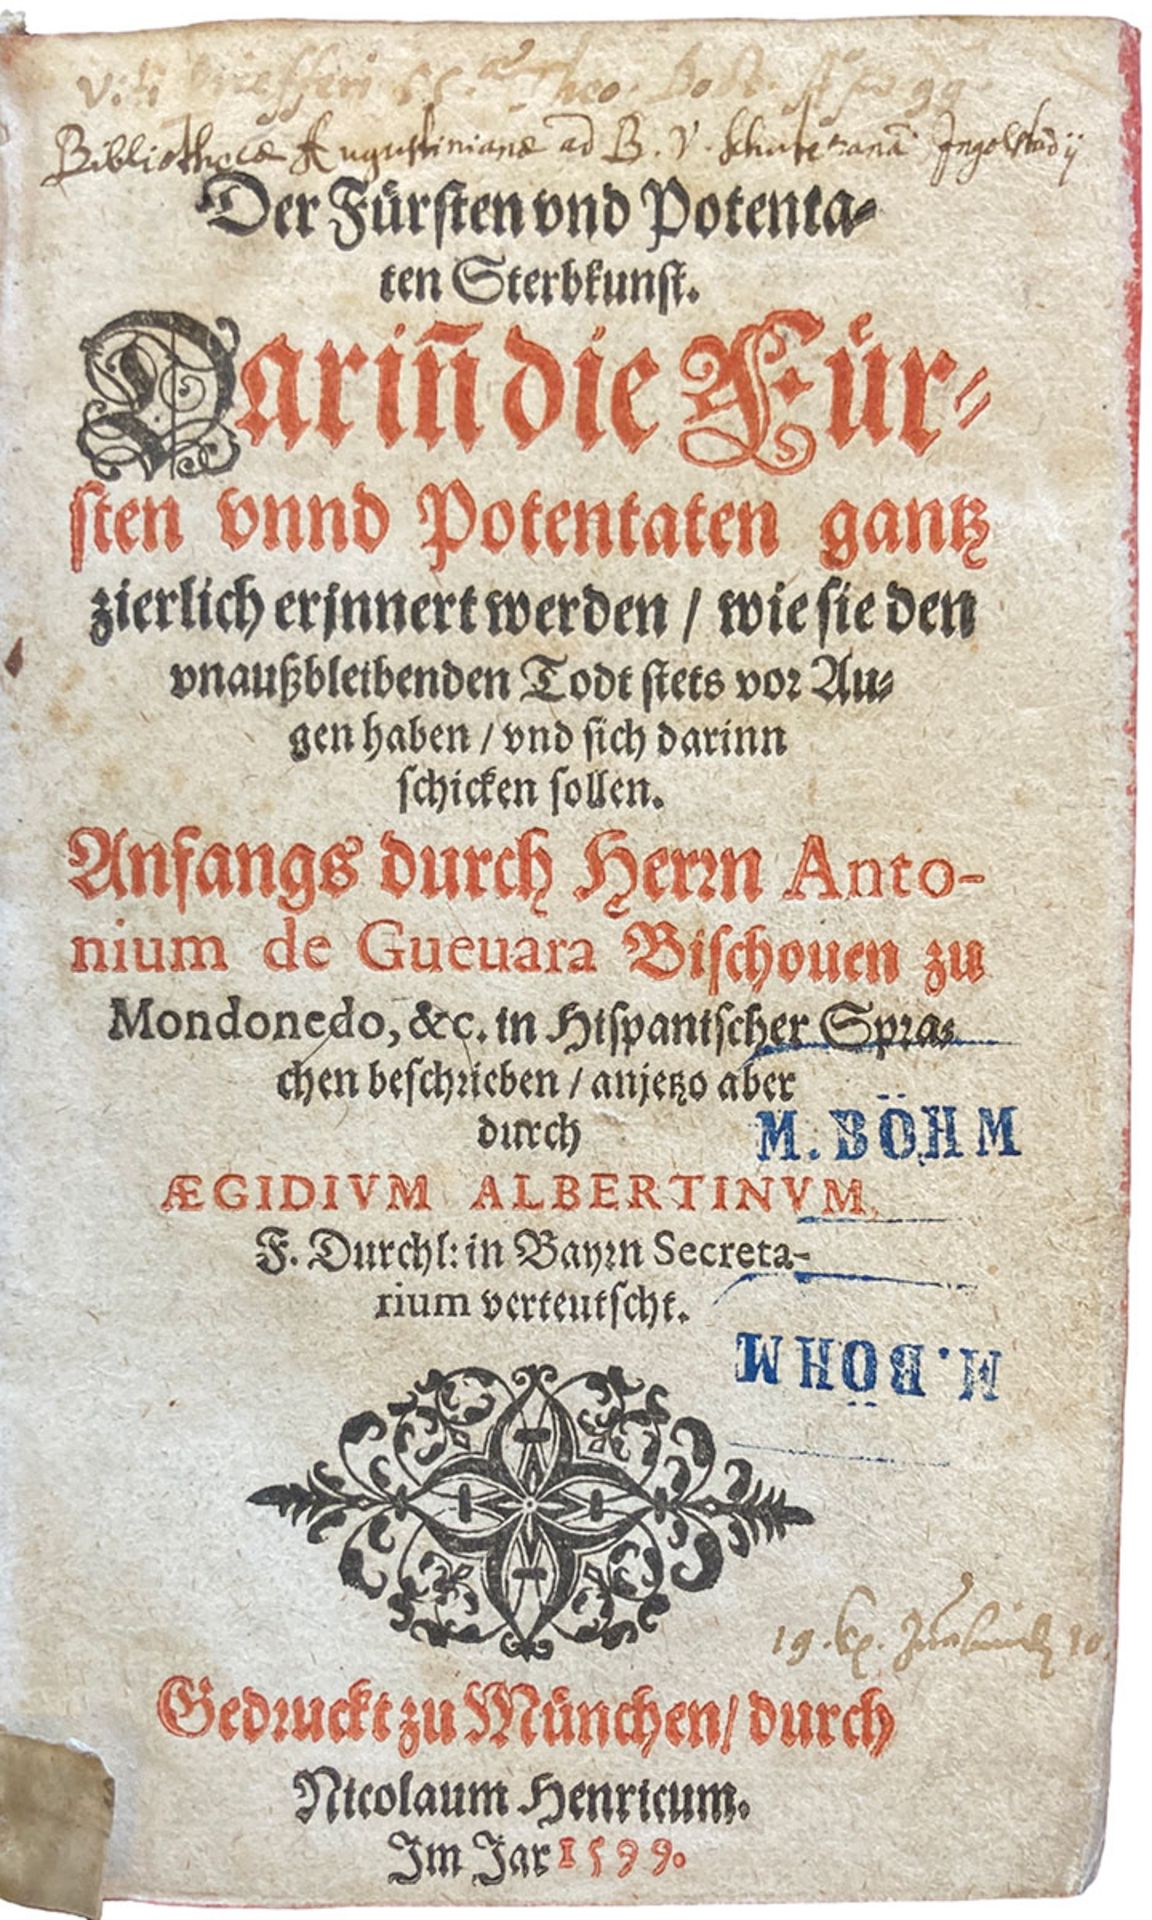 Bibliothecæ Augustinianæ ad B. V. Schuteranā Ingolstadij
Der Fürsten vnd Potenta-
ten Sterbkunst.
Dariñ die Für-
sten vnnd Potentaten gantz
zierlich erjnnert werden / wie sie den
vnaußbleibenden Todt stets vor Au-
gen haben / vnd sich darinn
schicken sollen.
Anfangs durch Herrn Anto-
nium de Gueuara Bischouen zu
Mondonedo, &c. in Hispanischer Spra-
chen beschrieben / anjetzo aber
durch
M. BÖHM
ÆGIDIVM ALBERTINVM,
F. Durchl: in Bayrn Secreta-
rium verteutscht.
M. BÖHM
Gedruckt zu München / durch
Nicolaum Henricum.
Im Jar 1599.